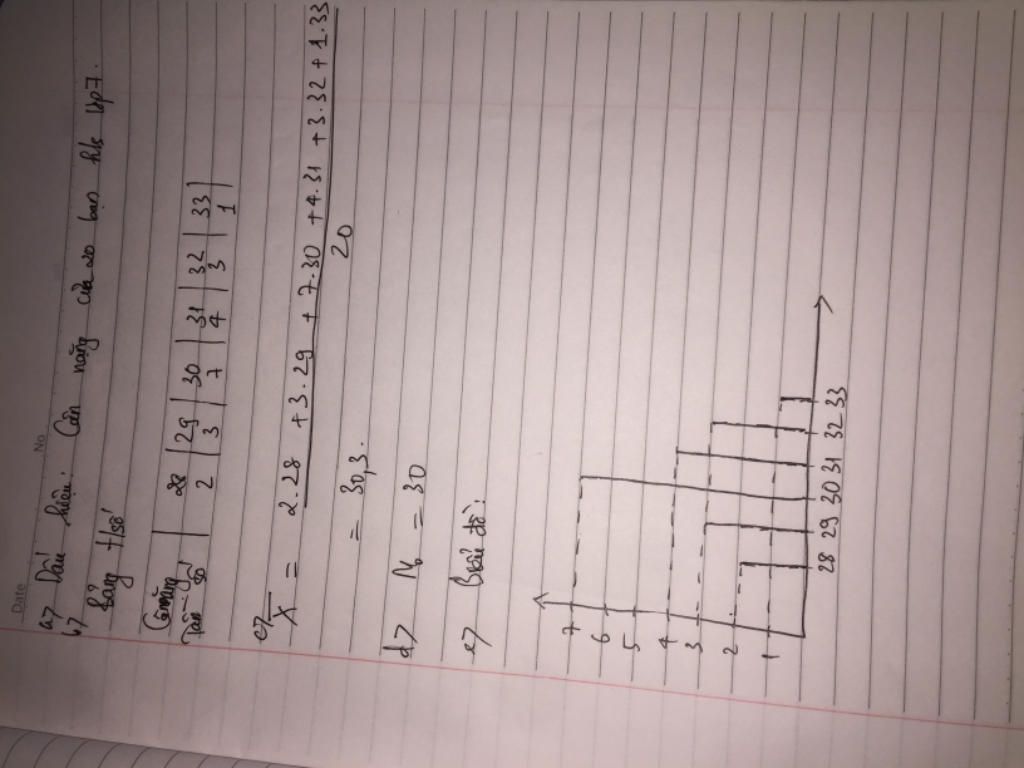 Date No
a> Dấu hiệu: Cân nặng của 20 bạn h/s lớp 7.
b> Bảng t/số
C.nặng | 28 | 29 | 30 | 31 | 32 | 33 |
Tần số | 2 | 3 | 7 | 4 | 3 | 1
c> X = 2.28 + 3.29 + 7.30 + 4.31 + 3.32 + 1.33
20
= 30,3.
d> M₀ = 30
e> Biểu đồ:
7
6
5
4
3
2
1
28 29 30 31 32 33